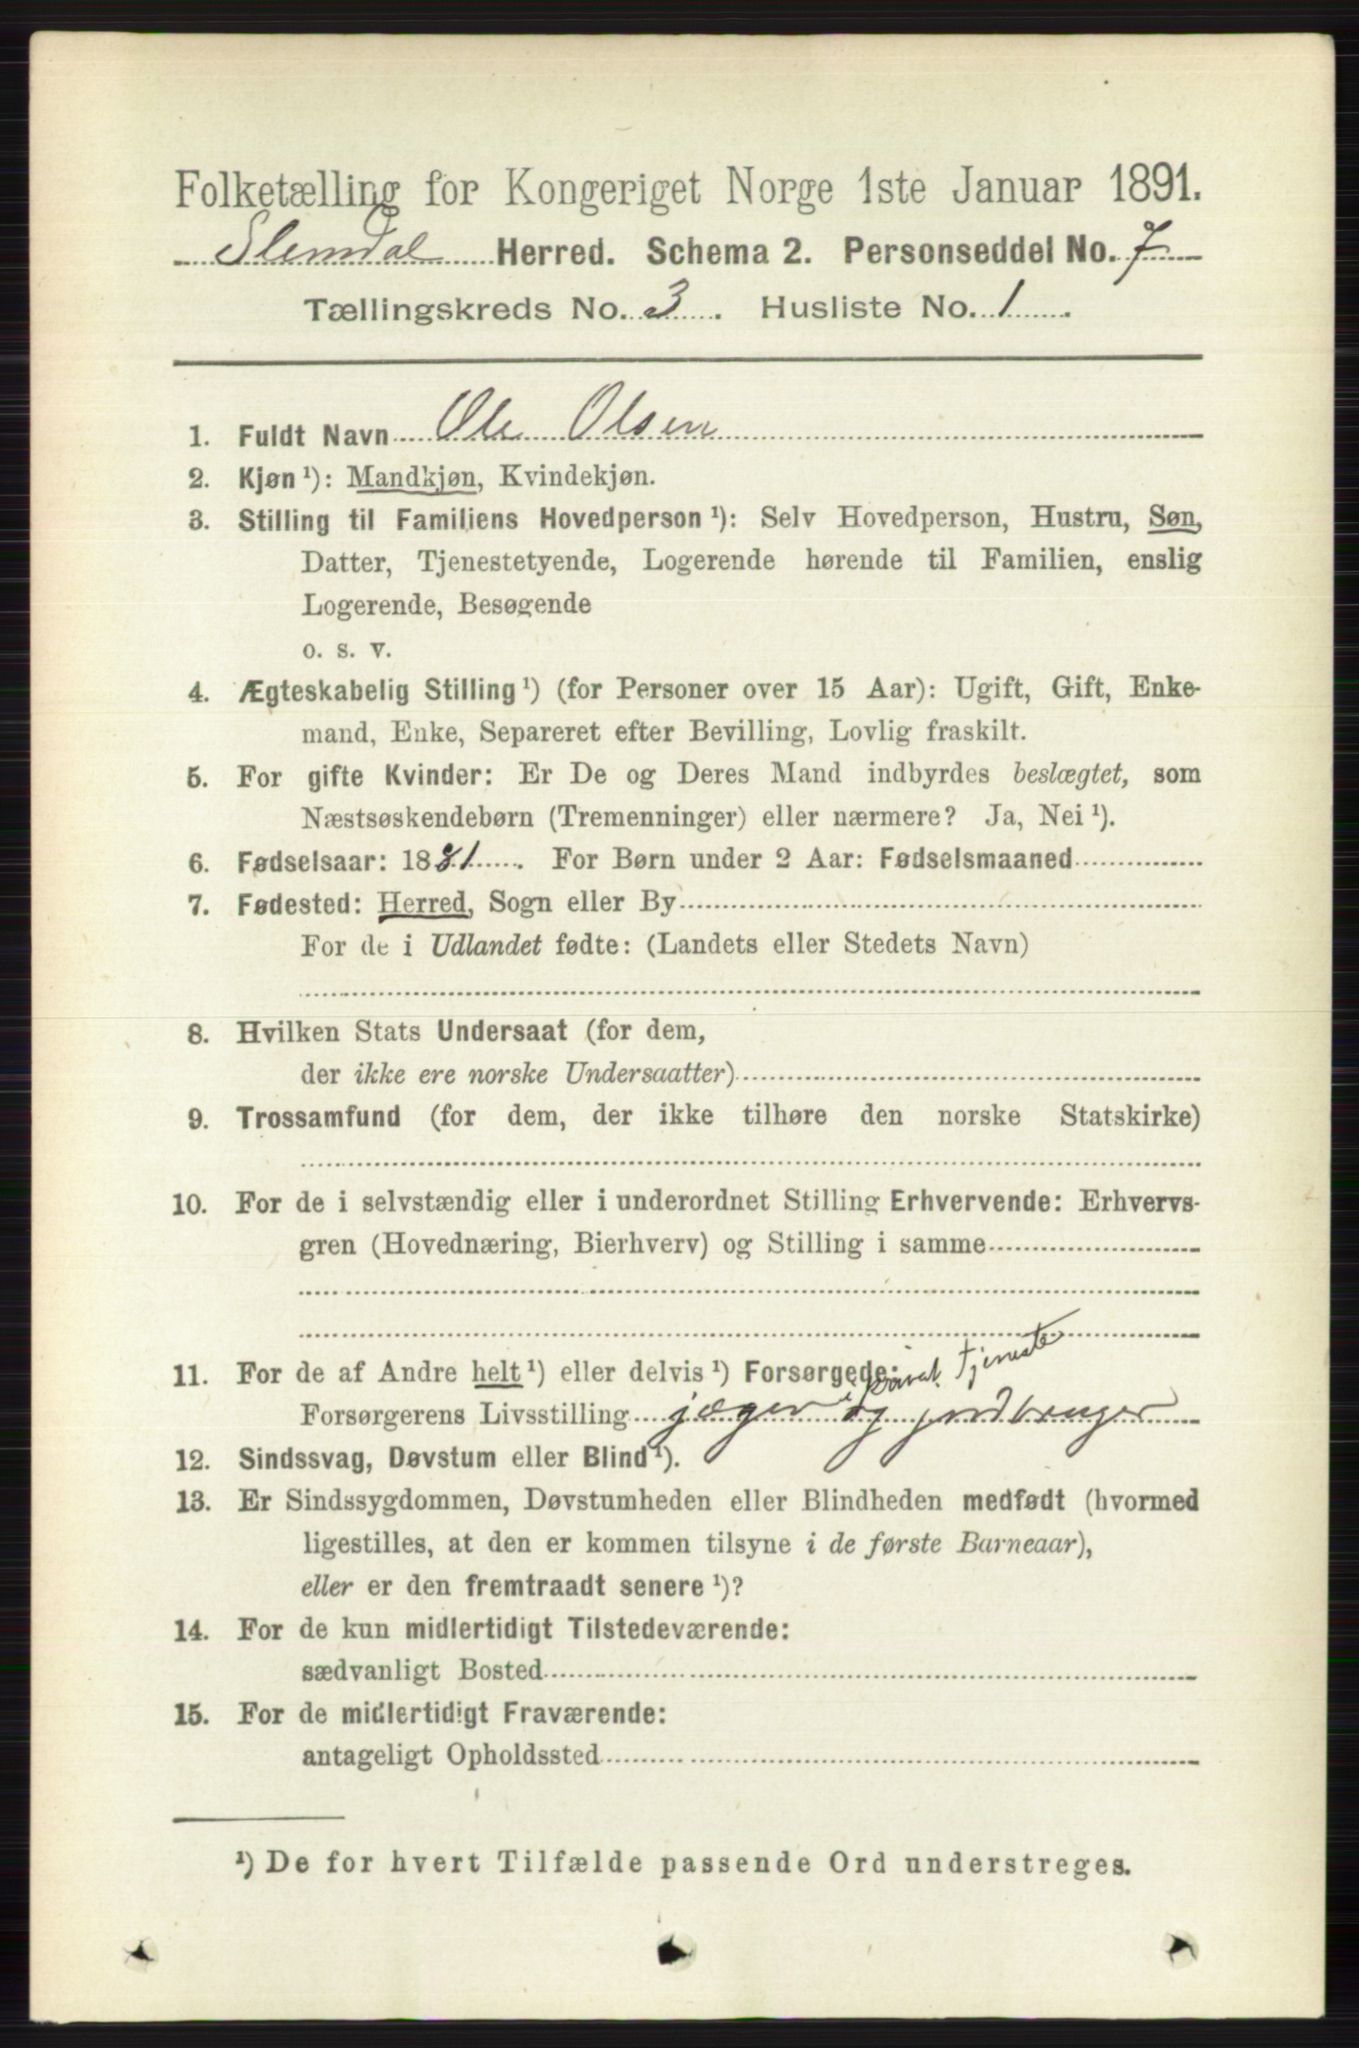 Folketælling for Kongeriget Norge 1ste Januar 1891.
Slemdal Herred. Schema 2. Personseddel No. 7
Tællingskreds No. 3. Husliste No. 1.
1. Fuldt Navn Ole Olsen
2. Kjøn ¹): Mandkjøn, Kvindekjøn.
3. Stilling til Familiens Hovedperson ¹): Selv Hovedperson, Hustru, Søn,
Datter, Tjenestetyende, Logerende hørende til Familien, enslig
Logerende, Besøgende
o. s. v.
4. Ægteskabelig Stilling ¹) (for Personer over 15 Aar): Ugift, Gift, Enke-
mand, Enke, Separeret efter Bevilling, Lovlig fraskilt.
5. For gifte Kvinder: Er De og Deres Mand indbyrdes beslægtet, som
Næstsøskendebørn (Tremenninger) eller nærmere? Ja, Nei ¹).
6. Fødselsaar: 1881. For Børn under 2 Aar: Fødselsmaaned
7. Fødested: Herred, Sogn eller By
For de i Udlandet fødte: (Landets eller Stedets Navn)
8. Hvilken Stats Undersaat (for dem,
der ikke ere norske Undersaatter)
9. Trossamfund (for dem, der ikke tilhøre den norske Statskirke)
10. For de i selvstændig eller i underordnet Stilling Erhvervende: Erhvervs-
gren (Hovednæring, Bierhverv) og Stilling i samme
11. For de af Andre helt ¹) eller delvis ¹) Forsørgede:
i privat tjeneste
Forsørgerens Livsstilling jæger og jordbruger
12. Sindssvag, Døvstum eller Blind ¹).
13. Er Sindssygdommen, Døvstumheden eller Blindheden medfødt (hvormed
ligestilles, at den er kommen tilsyne i de første Barneaar),
eller er den fremtraadt senere ¹)?
14. For de kun midlertidigt Tilstedeværende:
sædvanligt Bosted
15. For de midlertidigt Fraværende:
antageligt Opholdssted
¹) De for hvert Tilfælde passende Ord understreges.